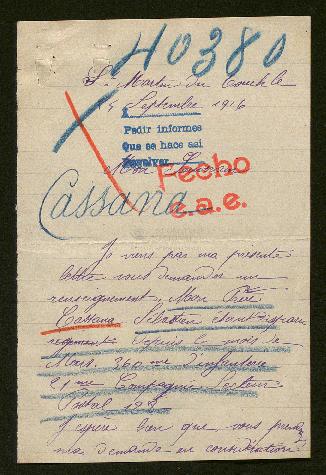 40380
St Martin du Touch le
4 Septembre 1916
Pedir informes
Que se hace asi
Devolver
Mon
Fecho
e.a.e.
Cassana
Je viens par ma presente
lettre vous demander un
renseignement, Mon Frère
Cassana Sébastien
regiment depuis le mois de
Mars. 26 me d'infanterie
21 me Compagnie Secteur
Postal
J'espère bien que vous prendrez
ma demande en considération